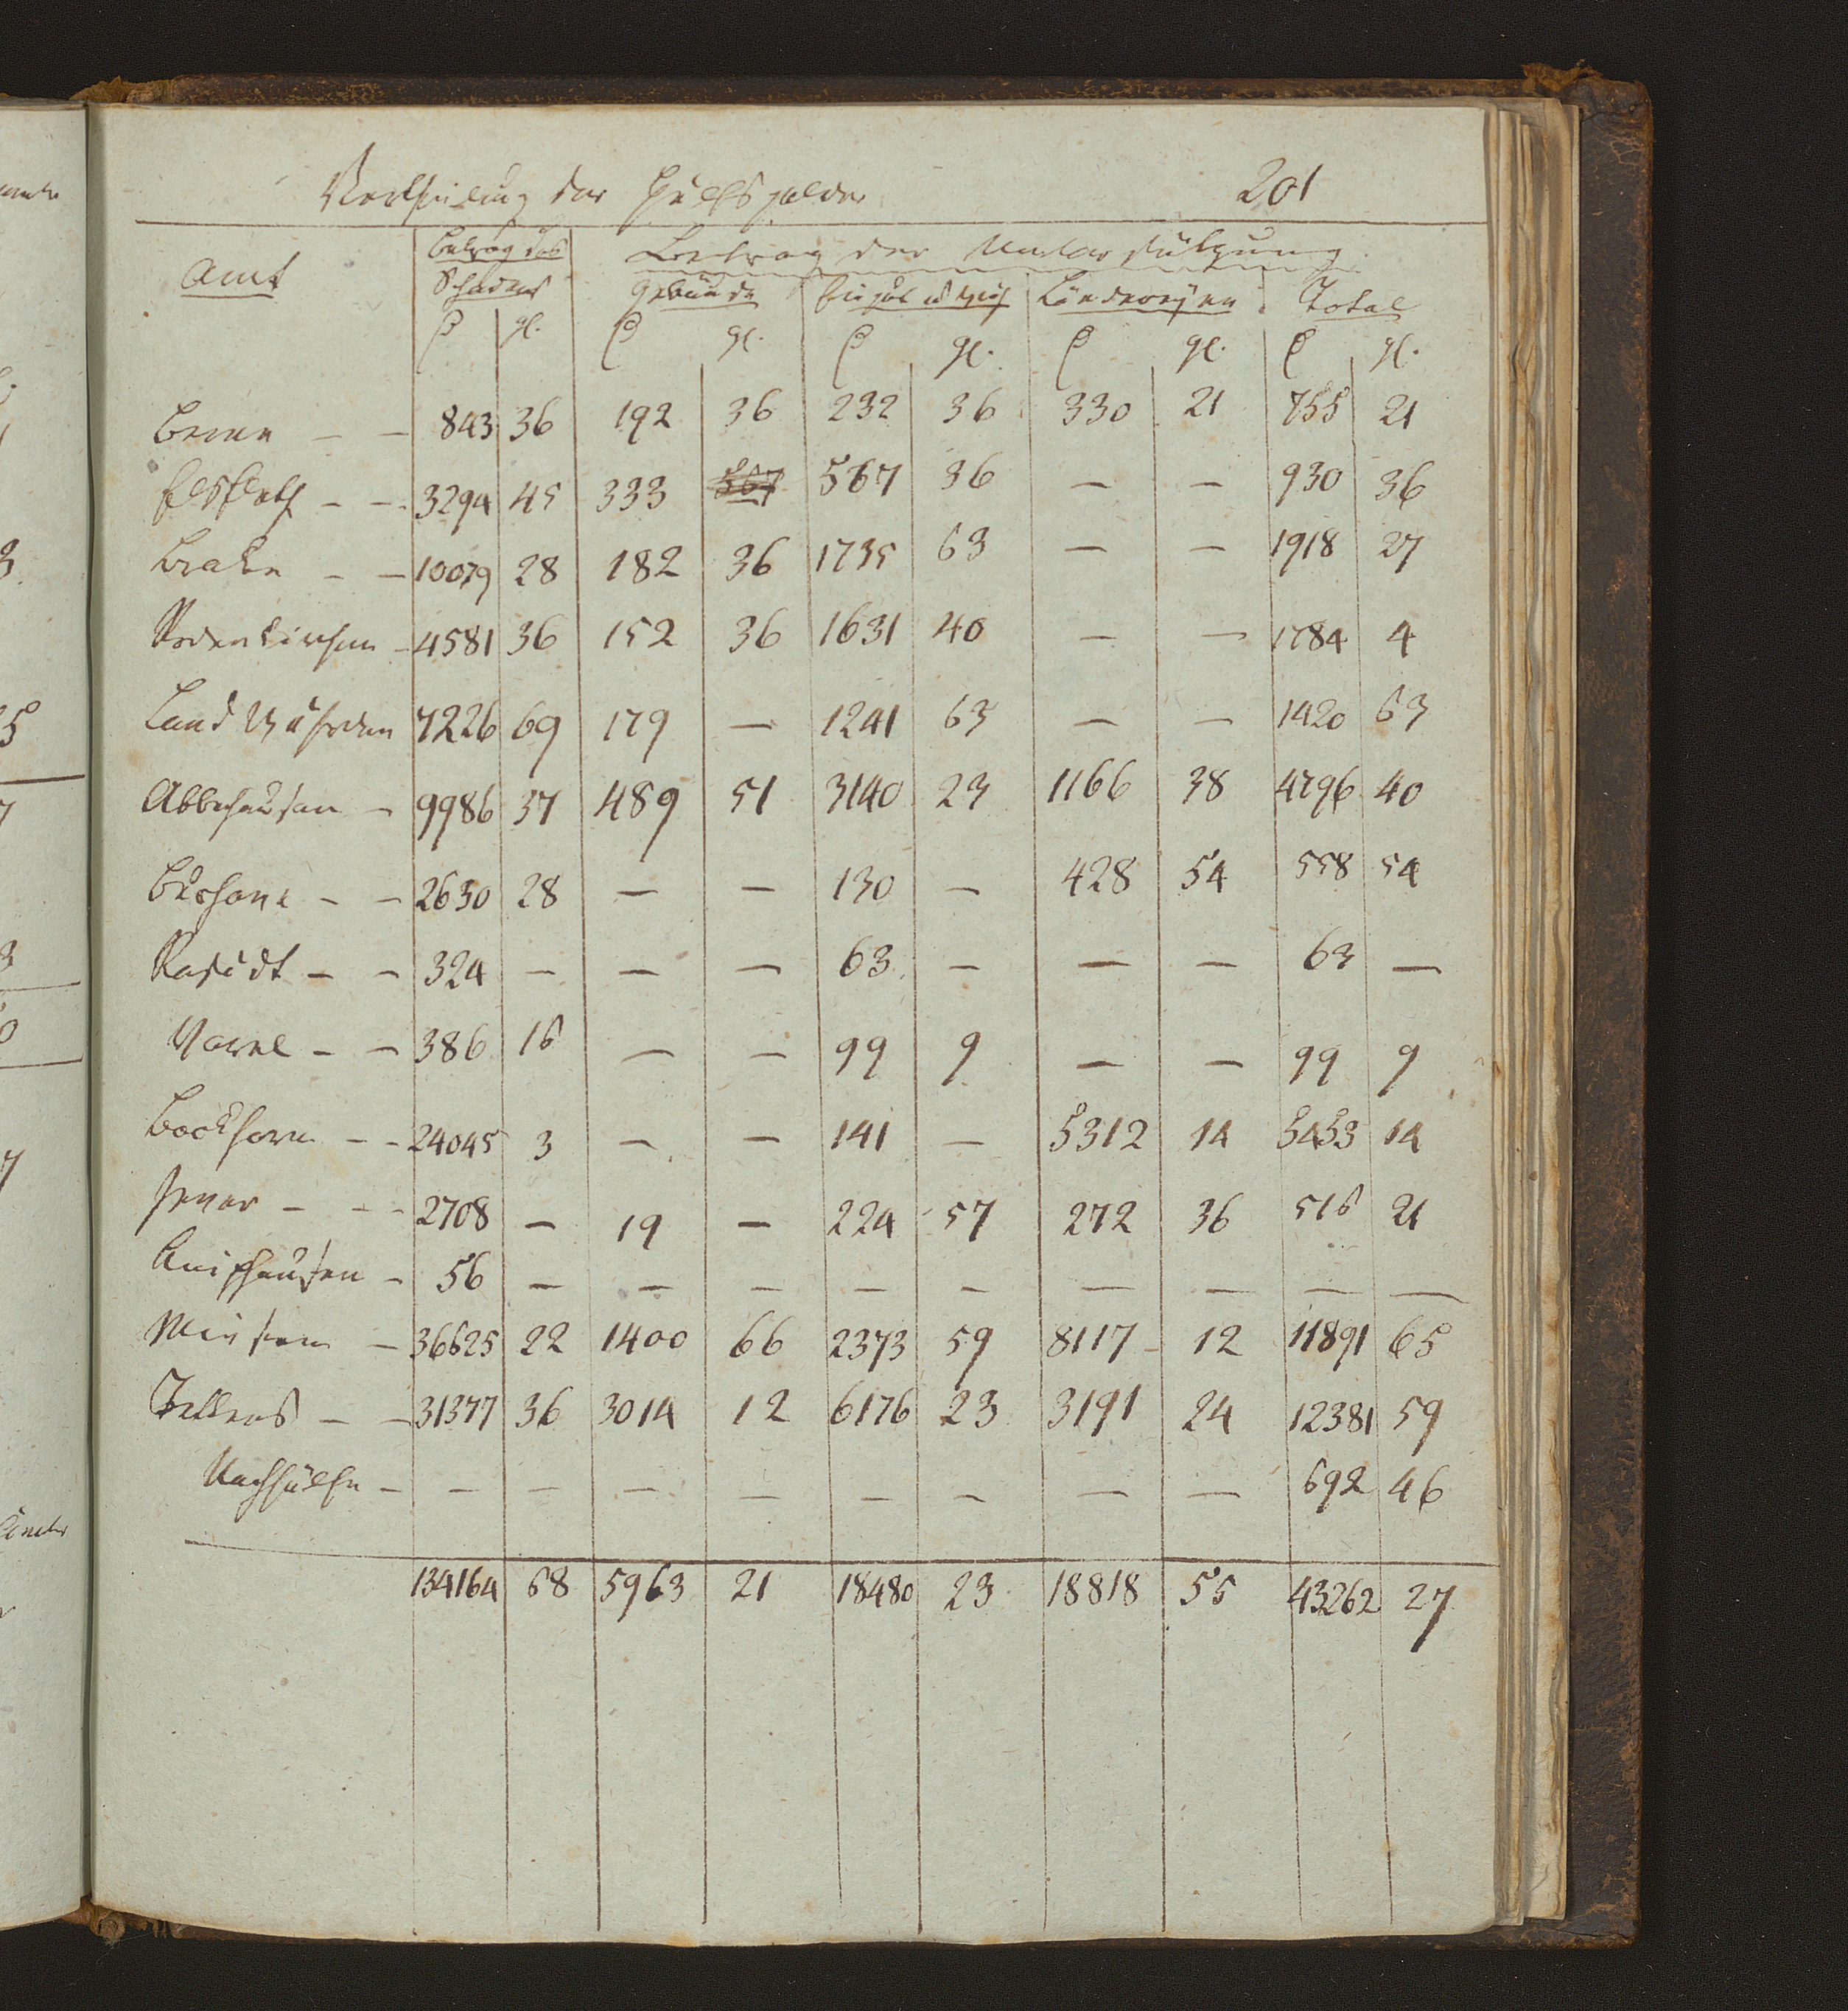 Vertheilung der Hülfsgelder 201
Amt Betrag des Schadens Betrag der Unterstützung
Gebäude Einguth u Vieh Ländereyen Total
gl. gl. gl. gl. gl.
Berne – – 843 36 192 36 232 36 330 21 755 21
Elsfleth – – 3294 45 333 567 567 36 — — 930 36
Brake – – 10079 28 182 36 1735 63 — — 1918 27
Rodenkirchen – 4581 36 152 36 1631 40 — — 1784 4
Land Wührden 7226 69 179 — 1241 63 — — 1420 63
Abbehausen – 9986 37 489 51 3140 23 1166 38 4796 40
Burhave – – 2630 28 — — 130 — 428 54 558 54
Rastedt – – 324 — — — 63 — — — 63 —
Varel – – 386 16 — — 99 9 — — 99 9
Bockhorn – – 24045 3 — — 141 — 5312 14 5453 14
Jever – – – 2708 — 19 — 224 57 272 36 516 21
Kniphausen – 56 — — — — — — — — —
Minsen – 36625 22 1400 66 2373 59 8117 12 11891 65
Tettens – – 31377 36 3014 12 6176 23 3191 24 12381 59
Nachhülfe – — — — — — — — — 692 46
134164 68 5963 21 18480 23 18818 55 43262 27